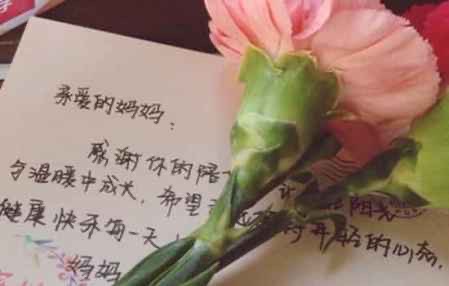 亲爱的妈妈:
感谢你的陪
温暖中成长,希望
健康快乐每一天 年轻的心态,
妈妈